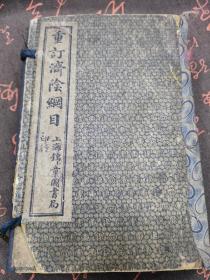 重訂濟陰綱目
上海錦章圖書局
印行